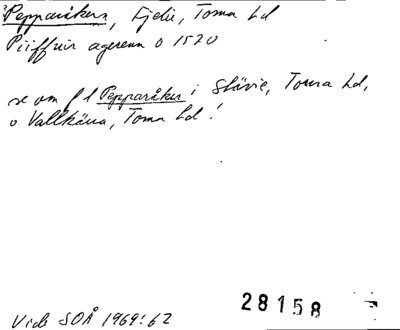 Pepparåkern, Fjelie, Torna hd
Piiffuir agerenn o 1570
se om f l Pepparåker i Stävie, Torna hd,
o Vallkärra, Torna hd!
28158
Vide SOÅ 1969:62